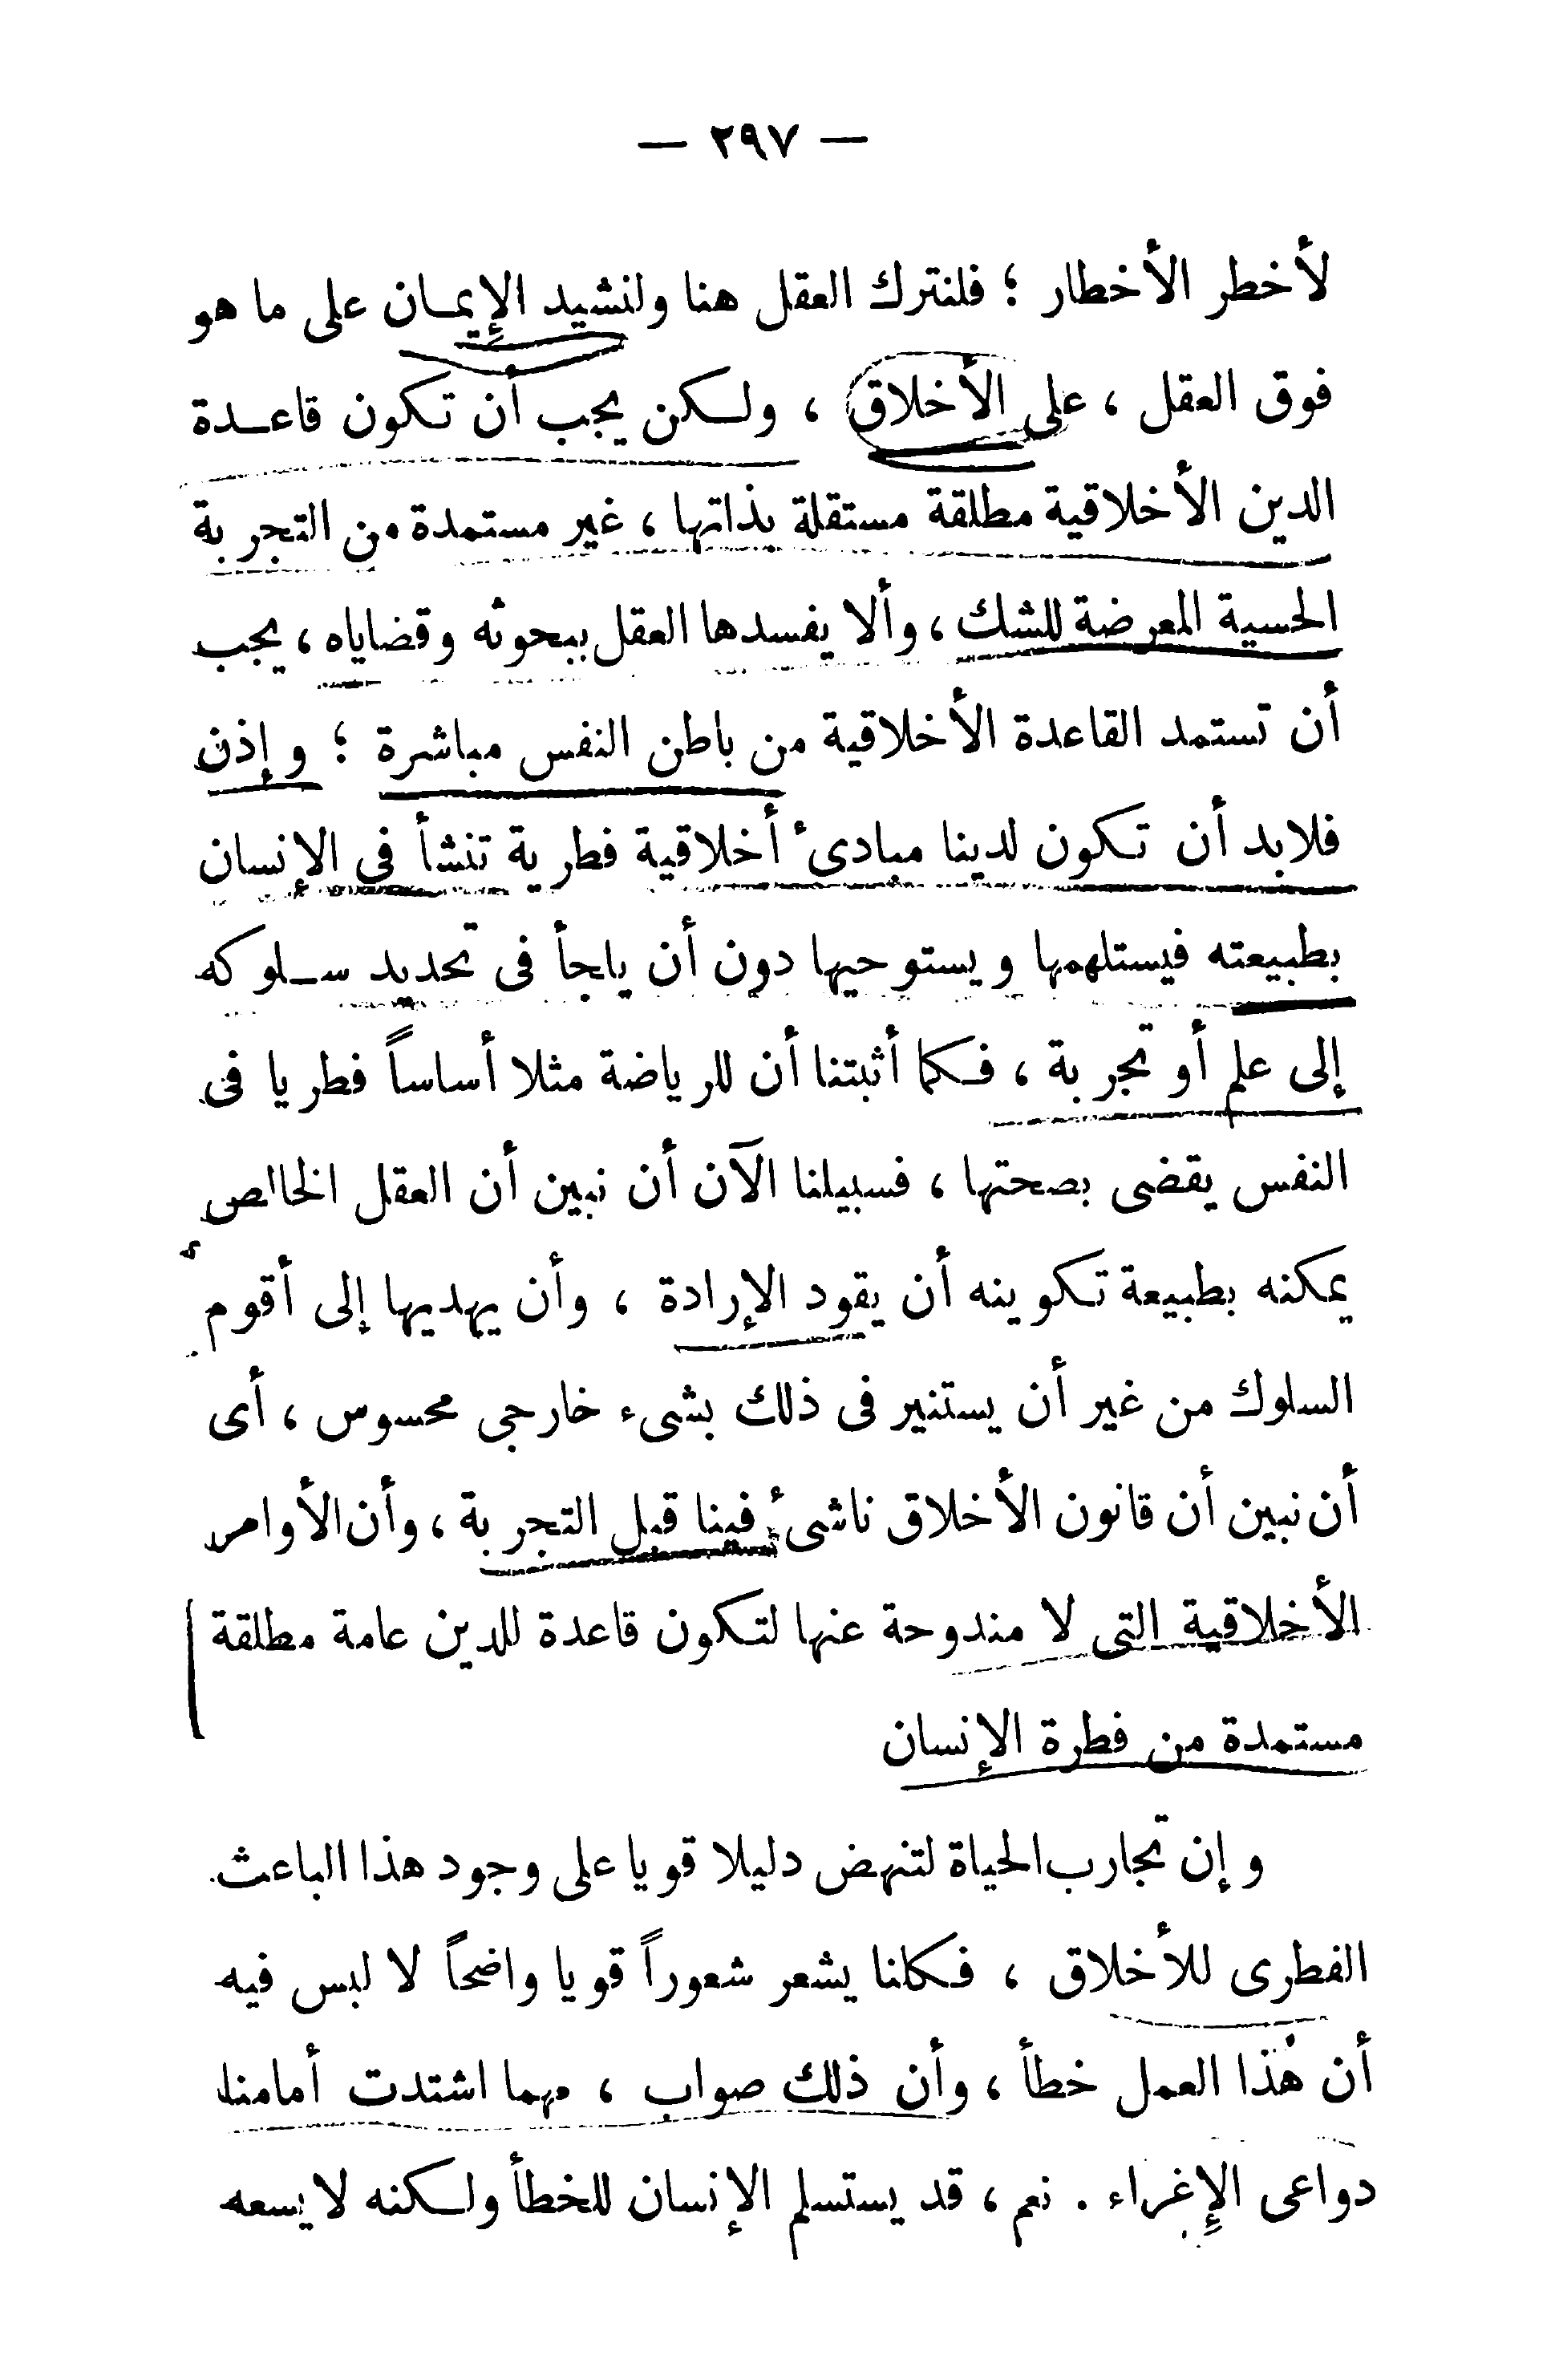 — ٢٩٧ —
لأخطر الأخطار ؛ فلنترك العقل هنا ولنشيد الإيمـان على ما هو
فوق العقل ، على الأخلاق ، ولـكن يجب أن تـكون قاعـدة
الدين الأخلاقية مطلقة مستقلة بذاتها ، غير مستمدة من التجربة
الحسية المعرضة للشك ، وألا يفسدها العقل ببحوثه وقضاياه ، يجب
أن تستمد القاعدة الأخلاقية من باطن النفس مباشرة ؛ وإذن
فلابد أن تـكون لدينا مبادىء أخلاقية فطرية تنشأ فى الإنسان
بطبيعته فيستلهمها ويستوحيها دون أن يلجأ فى تحديد سـلوكه
إلى علم أو تجربة ، فـكما أثبتنا أن للرياضة مثلا أساساً فطريا فى
النفس يقضى بصحتها ، فسبيلنا الآن أن نبين أن العقل الخالص
يمكنه بطبيعة تـكوينه أن يقود الإرادة ، وأن يهديها إلى أقوم
السلوك من غير أن يستنير فى ذلك بشىء خارجى محسوس ، أى
أن نبين أن قانون الأخلاق ناشىء فينا قبل التجربة ، وأن الأوامر
الأخلاقية التى لا مندوحة عنها لتـكون قاعدة للدين عامة مطلقة
مستمدة من فطرة الإنسان
وإن تجارب الحياة لتنهض دليلا قويا على وجود هذا الباعث
الفطرى للأخلاق ، فـكلنا يشعر شعوراً قويا واضحاً لا لبس فيه
أن هٰذا العمل خطأ ، وأن ذلك صواب ، مهما اشتدت أمامنا
دواعى الإغراء . نعم ، قد يستسلم الإنسان للخطأ ولـكنه لا يسعه